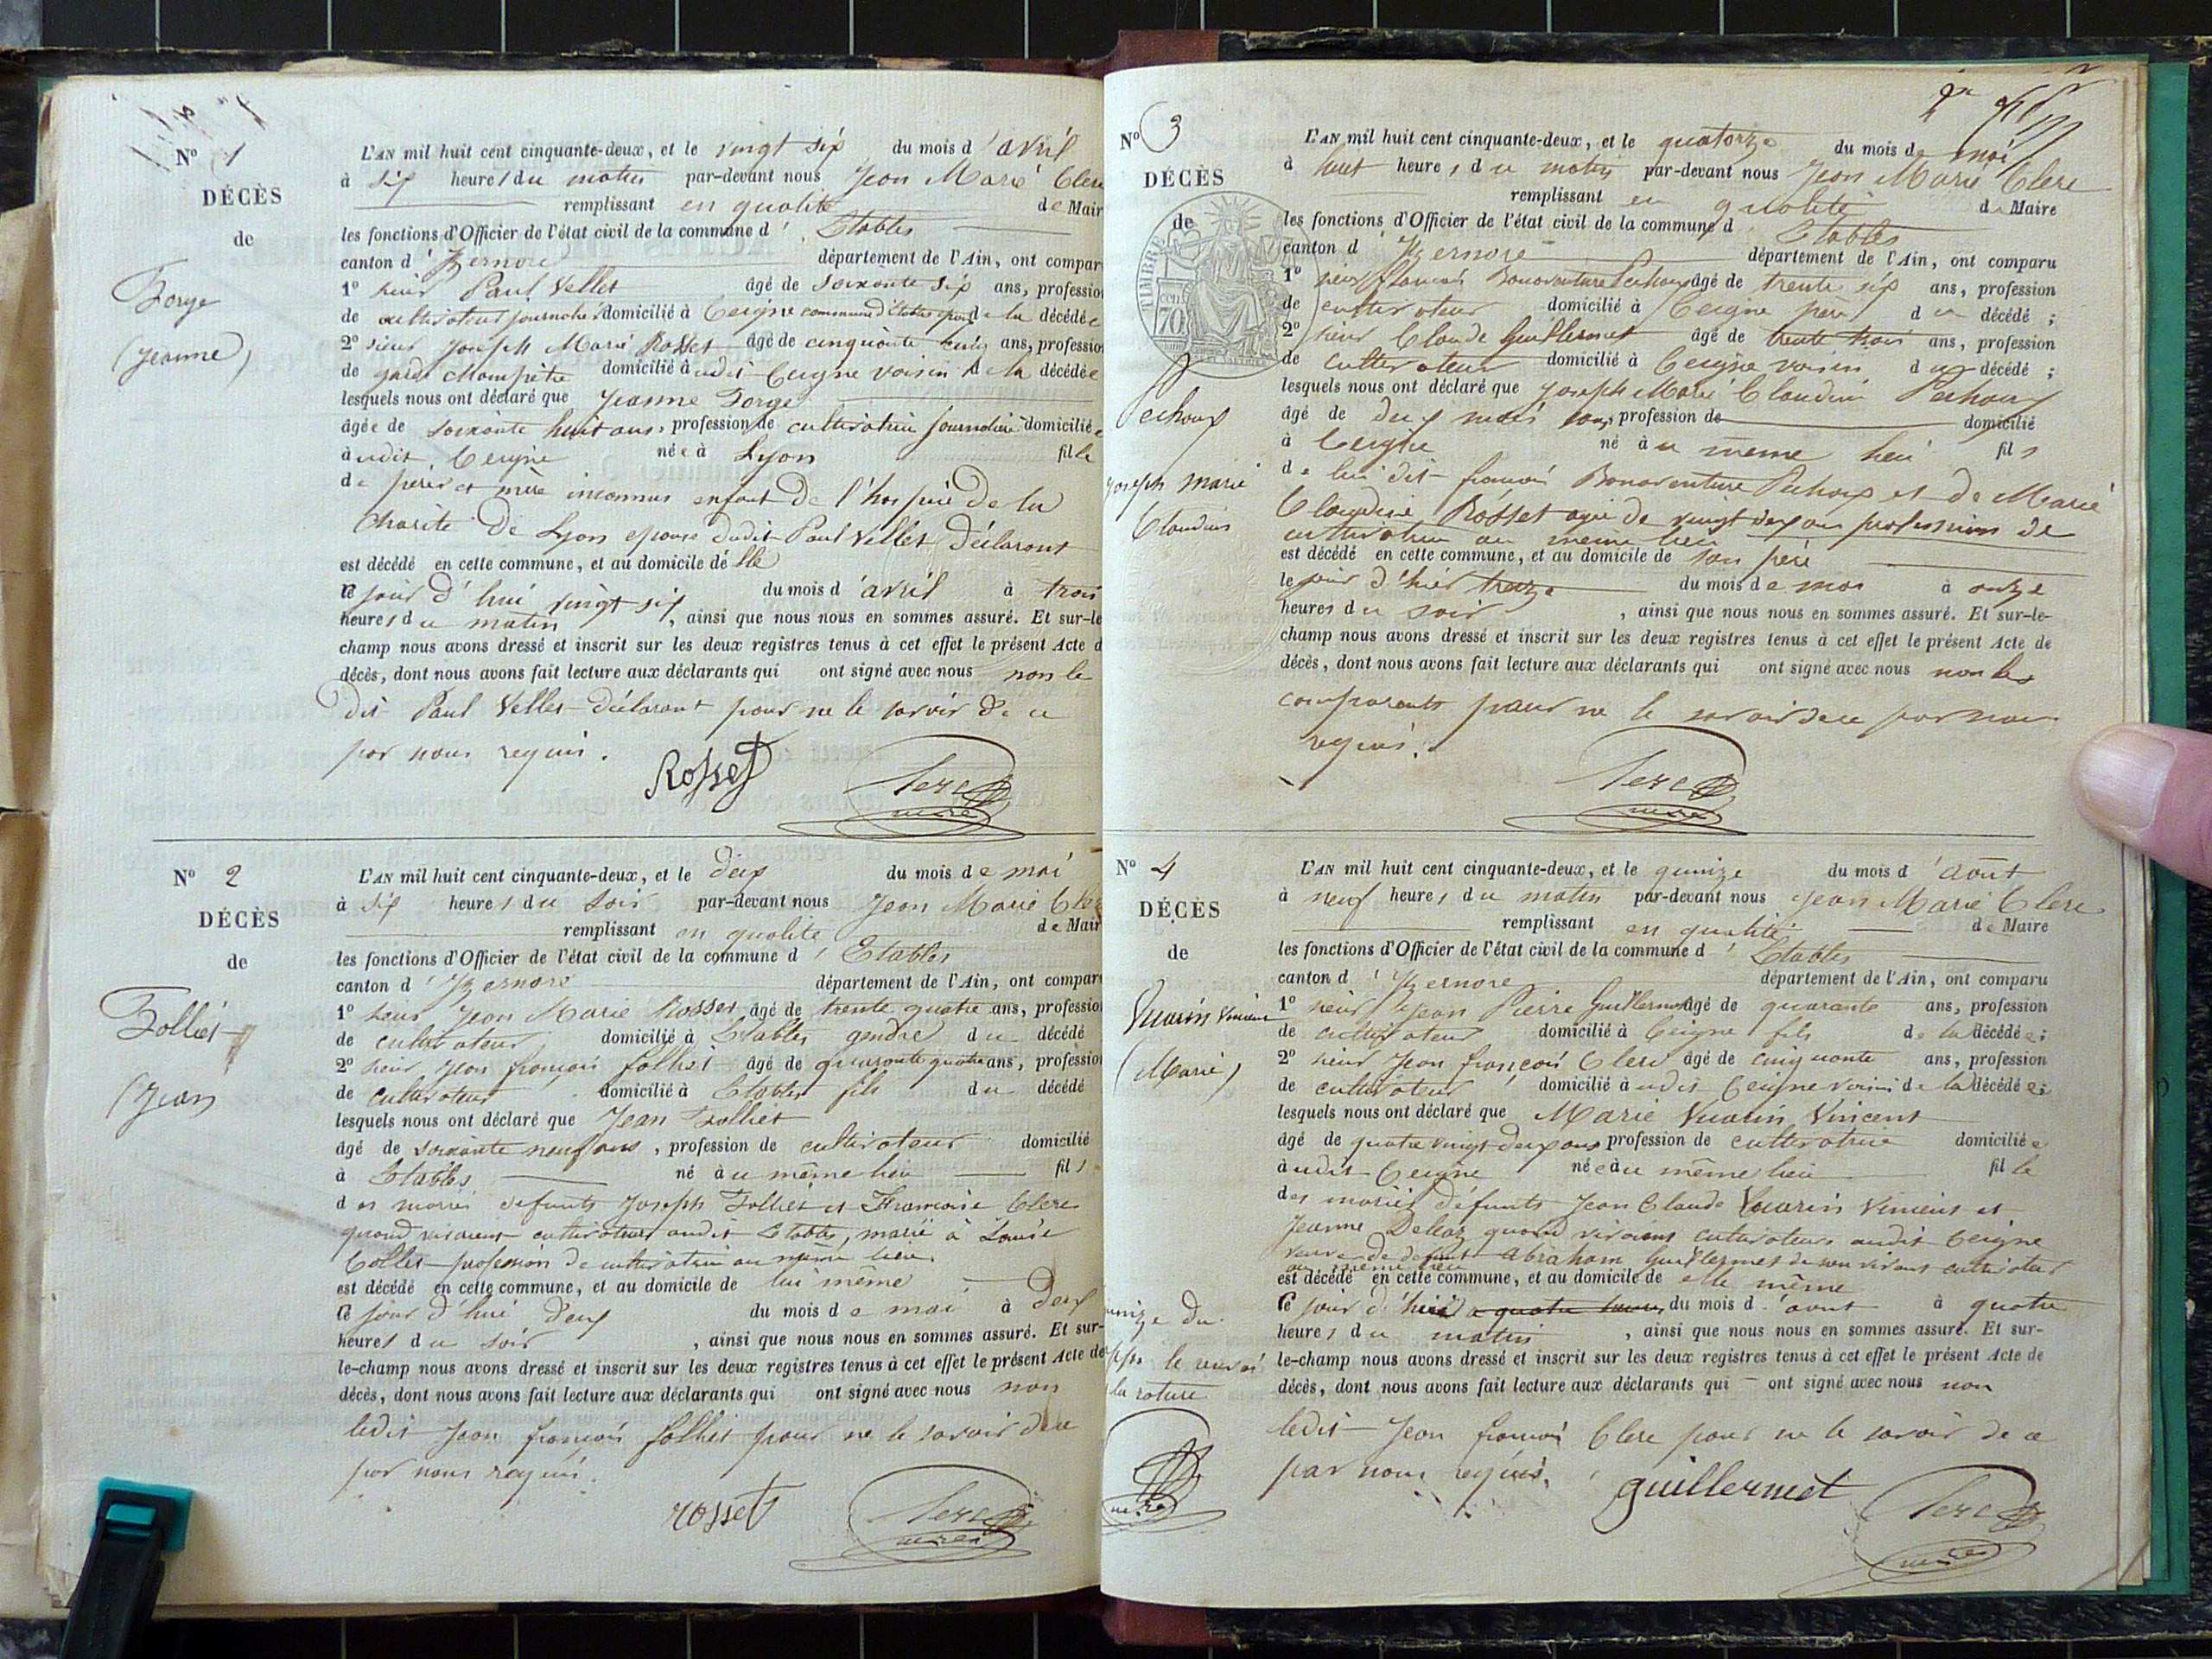 N° 1
DÉCÈS
de
Forge
(Jeanne)
L'AN mil huit cent cinquante-deux, et le vingt six du mois d'avril
à six heures du matin par-devant nous Jean Marie Clerc
remplissant en qualité de Mair
les fonctions d'Officier de l'état civil de la commune d'Etables
canton d'Izernore département de l'Ain, ont compar
1° sieur Paul Vellet âgé de soixante six ans, profession
de cultivateur journalier domicilié à Ceigne commune d'Etables époux de la décédée
2° sieur Joseph Marie Rosset âgé de cinquante cinq ans, profession
de garde champêtre domicilié audit Ceigne voisin de la décédée
lesquels nous ont déclaré que Jeanne Forge
âgée de soixante huit ans, profession de cultivatrice journalière domiciliée
audit Ceigne née à Lyon fille
de père et mère inconnus enfant de l'hospice de la
charité de Lyon epouse dudit Paul Vellet déclarant
est décédé en cette commune, et au domicile d'elle
ce jour d'hui vingt six du mois d'avril à trois
heures du matin, ainsi que nous nous en sommes assuré. Et sur-le
champ nous avons dressé et inscrit sur les deux registres tenus à cet effet le présent Acte d
décès, dont nous avons fait lecture aux déclarants qui ont signé avec nous non le
dit Paul Vellet déclarant pour ne le savoir de ce
par nous requis.
Rosset Clerc
maire
N° 2
DÉCÈS
de
Folliet
(Jean
L'AN mil huit cent cinquante-deux, et le deux du mois de mai
à six heures du soir par-devant nous Jean Marie Cler
remplissant en qualité de Mair
les fonctions d'Officier de l'état civil de la commune d'Etables
canton d'Izernore département de l'Ain, ont compar
1° sieur Jean Marie Rosset âgé de trente quatre ans, profession
de cultivateur domicilié à Etables gendre du décédé
2° sieur Jean françois folliet âgé de quarante quatre ans, profession
de cultivateur domicilié à Etables fils du décédé
lesquels nous ont déclaré que Jean Folliet
âgé de soixante neuf ans, profession de cultivateur domicilié
à Etables né au même lieu fils
des mariés defunts Joseph Folliet et Françoise Clerc
quand vivaient cultivateurs audit Etables, marié à Louise
Collet profession de cultivatrice au même lieu
est décédé en cette commune, et au domicile de lui même
ce jour d'hui deux du mois de mai à deux
heures du soir, ainsi que nous nous en sommes assuré. Et sur-
le-champ nous avons dressé et inscrit sur les deux registres tenus à cet effet le présent Acte de
décès, dont nous avons fait lecture aux déclarants qui ont signé avec nous non
ledit Jean françois folliet pour ne le savoir de ce
par nous requis.
rosset Clerc
maire
N° 3
DÉCÈS
de
TIMBRE
70 cen
Pechoux
Joseph Marie
Claudius
L'AN mil huit cent cinquante-deux, et le quatorze du mois de mai
à huit heures du matin par-devant nous Jean Marie Clerc
remplissant en qualité de Maire
les fonctions d'Officier de l'état civil de la commune d'Etables
canton d'Izernore département de l'Ain, ont comparu
1° sieur françois Bonaventure Pechoux âgé de trente six ans, profession
de cultivateur domicilié à Ceigne père du décédé ;
2° sieur Claude Guillermet âgé de trente trois ans, profession
de cultivateur domicilié à Ceigne voisin du décédé ;
lesquels nous ont déclaré que Joseph Marie Claudius Pechoux
âgé de deux mois ans, profession de domicilié
à Ceigne né au même lieu fils
de lui dit françois Bonaventure Pechoux et de Marie
Claudine Rosset agée de vingt deux ans profession de
cultivatrice au même lieu
est décédé en cette commune, et au domicile de son père
le jour d'hier treize du mois de mai à onze
heures du soir, ainsi que nous nous en sommes assuré. Et sur-le-
champ nous avons dressé et inscrit sur les deux registres tenus à cet effet le présent Acte de
décès, dont nous avons fait lecture aux déclarants qui ont signé avec nous non les
comparants pour ne le savoir de ce par nous
requis.
Clerc
maire
N° 4
DÉCÈS
de
Vuarin Vincent
(Marie)
L'AN mil huit cent cinquante-deux, et le quinze du mois d'août
à neuf heures du matin par-devant nous Jean Marie Clerc
remplissant en qualité de Maire
les fonctions d'Officier de l'état civil de la commune d'Etables
canton d'Izernore département de l'Ain, ont comparu
1° sieur Jean Pierre Guillermet âgé de quarante ans, profession
de cultivateur domicilié à Ceigne fils de la décédée ;
2° sieur Jean françois Clerc âgé de cinquante ans, profession
de cultivateur domicilié audit Ceigne voisin de la décédée ;
lesquels nous ont déclaré que Marie Vuarin Vincent
âgé de quatre vingt deux ans profession de cultivatrice domiciliée
audit Ceigne née au même lieu fille
des mariés défunts Jean Claude Vuarin Vincent et
Jeanne quand vivaient cultivateurs audit Ceigne
veuve de defunt Abraham Guillermet de son vivant cultivateur
au même lieu
est décédé en cette commune, et au domicile de elle même
ce jour d'hui à quatre heures du mois d'aout à quatre
heures du matin, ainsi que nous nous en sommes assuré. Et sur-
le-champ nous avons dressé et inscrit sur les deux registres tenus à cet effet le présent Acte de
décès, dont nous avons fait lecture aux déclarants qui ont signé avec nous non
ledit Jean françois Clerc pour ne le savoir de ce
par nous requis.
guillermet Clerc
maire
uinze du
le renvoi
la rature